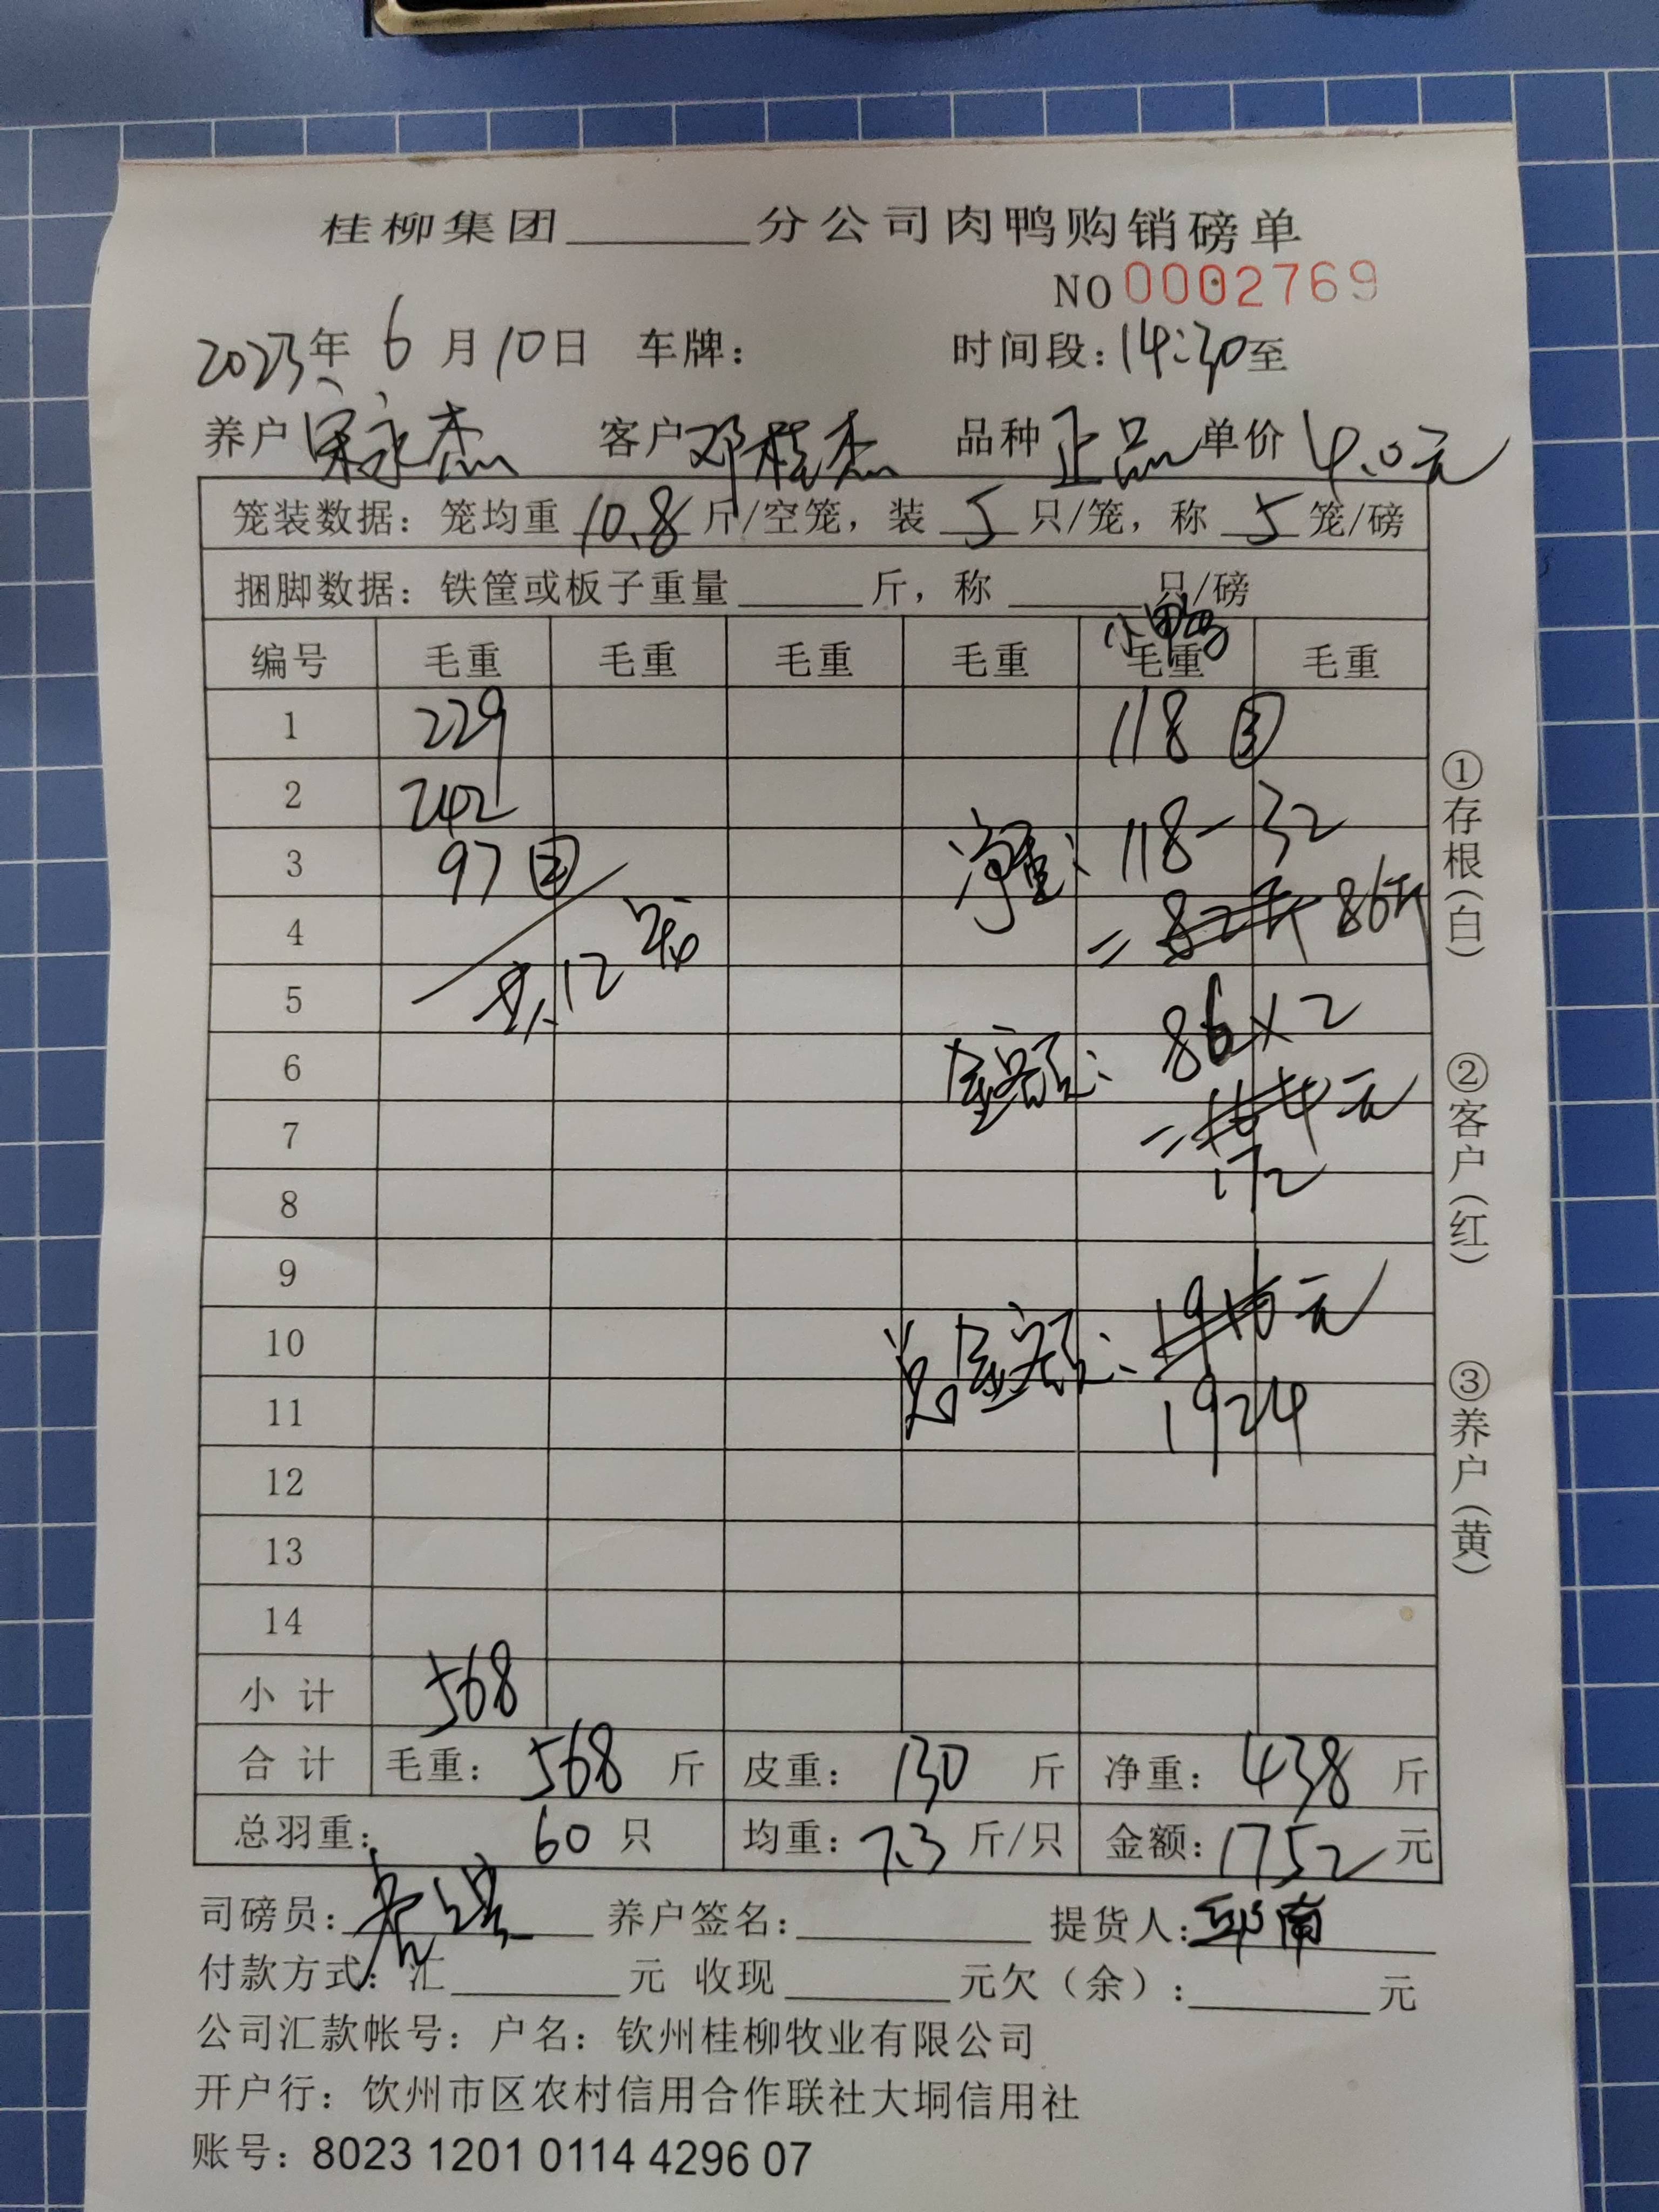 桂柳集团______分公司肉鸭购销磅单
NO 0002769
2023年 6 月 10日 车牌： 时间段：14:30至
养户 永杰 客户 邓桂杰 品种 正品 单价 4.0元
笼装数据：笼均重 10.8 斤/空笼，装 5 只/笼，称 5 笼/磅
捆脚数据：铁筐或板子重量______斤，称______只/磅
小鸭
编号 毛重 毛重 毛重 毛重 毛重 毛重
1 229 118 ③
2 242
净重：118-32
3 97 ②
4 = 82斤 86斤
共12笼
5 86×2
6 金额：
7 =164元
172
8
9
10 总金额：1916元
11 1924
12
13
14
小计 568
合计 毛重：568 斤 皮重：130 斤 净重：438 斤
总羽重：60 只 均重：7.3 斤/只 金额：1752 元
司磅员： 养户签名：______ 提货人：邱南
付款方式：汇______元 收现______元欠（余）：______元
公司汇款帐号：户名：钦州桂柳牧业有限公司
开户行：饮州市区农村信用合作联社大垌信用社
账号：8023 1201 0114 4296 07
①存根（白）
②客户（红）
③养户（黄）